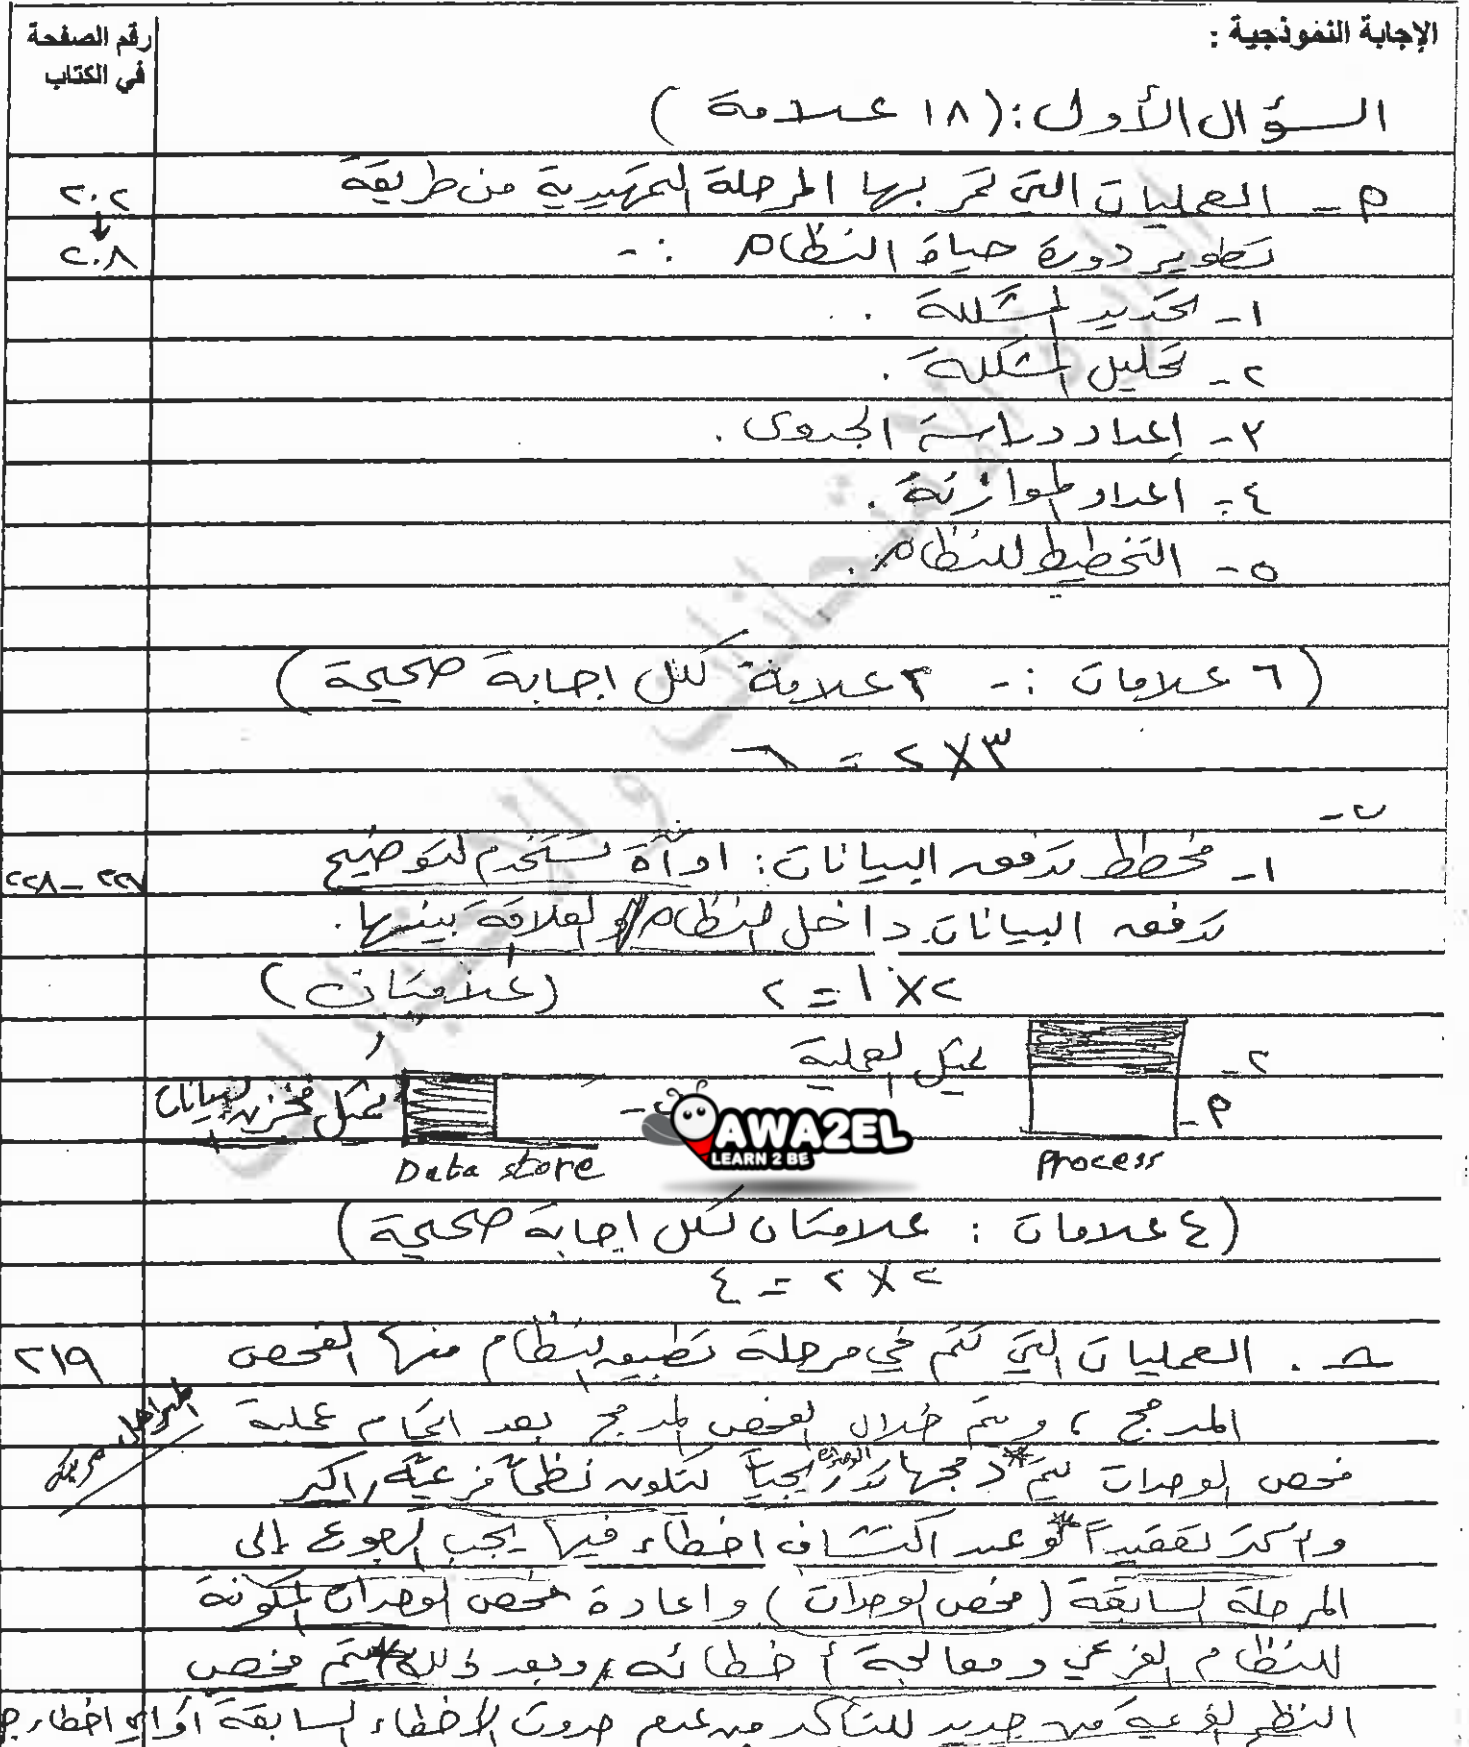 الإجابة النموذجية :
رقم الصفحة
في الكتاب
السؤال الأول : ( ١٨ علامة )
م - العمليات التي تمر بها المرحلة التمهيدية من طريقة
٢٠٢
تطوير دورة حياة النظام :-
٢٠٨
١- تحديد المشكلة .
٢- تحليل المشكلة .
٣- إعداد دراسة الجدوى .
٤- اعداد الموازنة .
٥- التخطيط للنظام .
( ٦ علامات :- ٢ علامة لكل اجابة صحيحة )
٣ × ٢ = ٦
ب -
١- مخطط تدفق البيانات : اداة تستخدم لتوضيح
٢٢٧ - ٢٢٨
تدفق البيانات داخل النظام والعلاقة بينها .
٢ × ١ = ٢ ( علامتان )
٢ -
م - يمثل العملية
ب - يمثل مخزن البيانات
AWA2EL
LEARN 2 BE
process
Data store
( ٤ علامات : علامتان لكل اجابة صحيحة )
٢ × ٢ = ٤
جـ . العمليات التي تتم في مرحلة تطبيق النظام منها الفحص
٢١٩
المدمج ، ويتم خلال الفحص المدمج بعد اتمام عملية
المراحل
فحص الوحدات يتم دمجها تدريجياً لتكون نظماً فرعية اكبر
واكثر تعقيداً وعند اكتشاف اخطاء فيها يجب الرجوع إلى
المرحلة السابقة ( فحص الوحدات ) واعادة فحص الوحدات المكونة
للنظام الفرعي ومعالجة أخطائه ، وبعد ذلك يتم فحص
النظم الفرعية من جديد للتأكد من عدم حدوث الأخطاء السابقة أو أي اخطاء